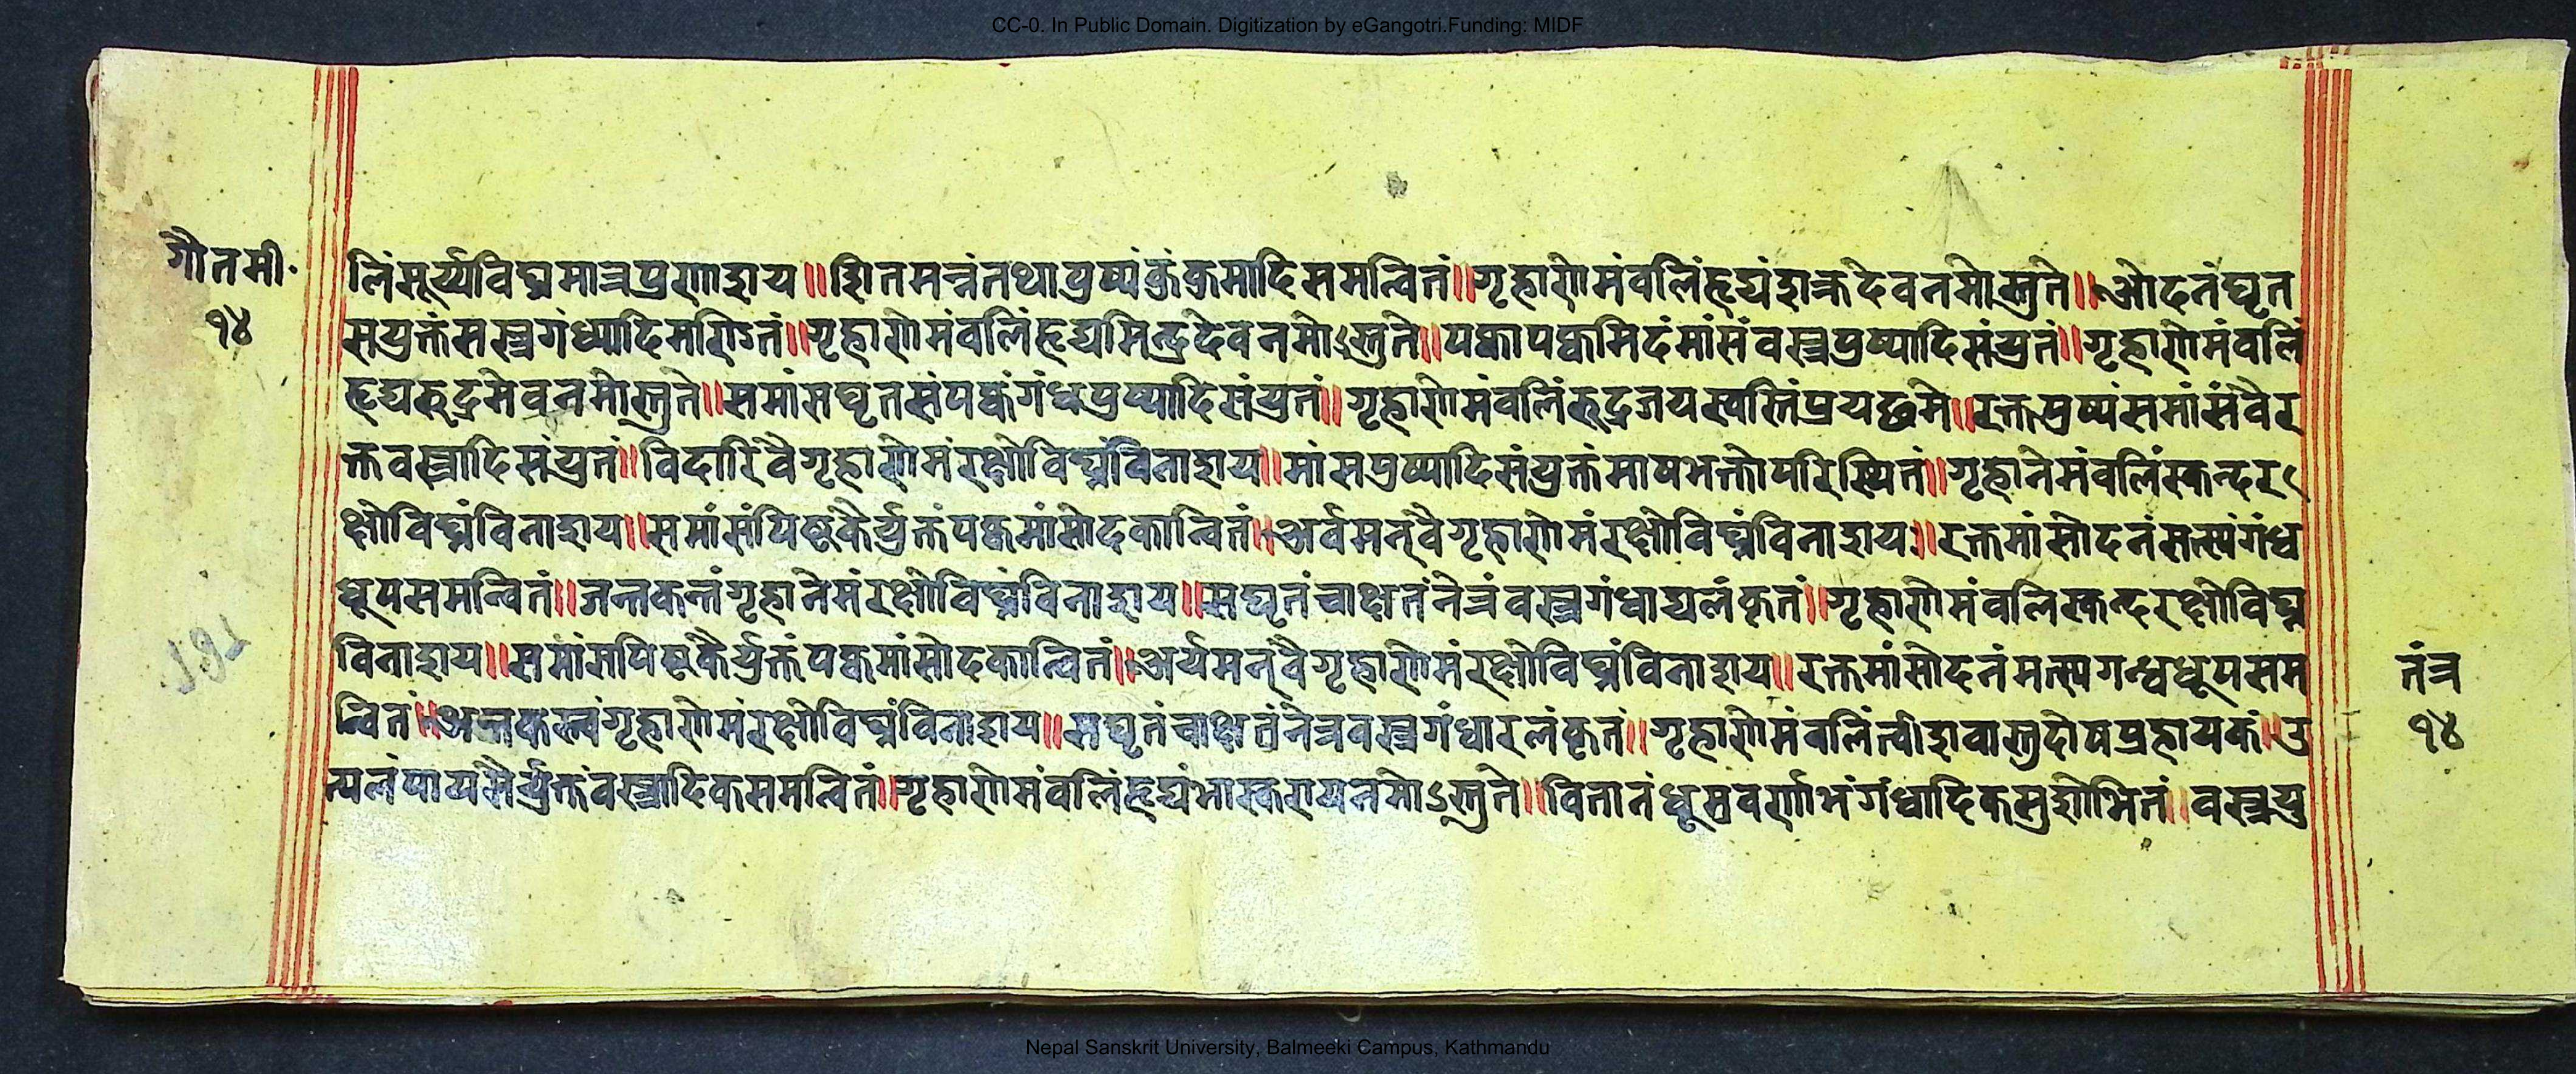 CC-0. In Public Domain. Digitization by eGangotri.Funding: MIDF
गौतमी॰
१४
लिंसूर्य्यविघ्नमात्रप्रणाशय॥शितमन्नंतथापुष्पंकुंकुमादिसमन्वितं॥गृहाणेमंवलिंहृद्यंशक्रदेवनमोस्तुते॥ओदनंघृत
सयुक्तंसस्त्रगंध्यादिमर्णितं॥गृहाणेमंवलिंहृद्यमिन्द्रदेवनमोऽस्तुते॥पक्वापक्वमिदंमांसंवस्त्रपुष्पादिसंयुतं॥गृहाणेमंवलिं
हृद्यरुद्रमेवनमोस्तुते॥समांसघृतसंपक्वंगंधपुष्पादिसंयुतं॥गृहाणेमंवलिंरुद्रजयस्वस्तिंप्रयछमे॥रक्तपुष्पंसमांसंवैर
क्तवस्त्रादिसंयुतं॥विदारिंवैगृहाणेमंरक्षोविघ्नंविनाशय॥मांसपुष्पादिसंयुक्तंमाषभक्तोपरिस्थितं॥गृहानेमंवलिंस्कन्दर
क्षोविघ्नंविनाशय॥समांसंपिष्टकैर्युक्तंपक्वमांसोदकान्वितं॥अर्वमन्वैगृहाणेमंरक्षोविघ्नंविनाशय॥रक्तमांसोदनंसत्स्यंगंध
धूपसमन्वितं॥जन्तकन्तंगृहानेमंरक्षोविघ्नंविनाशय॥सघृतंचाक्षतंनेत्रंवस्त्रगंधाद्यलंकृतं॥गृहाणेमंवलिस्कन्दरक्षोविघ्न
विनाशय॥समांसपिष्टकैर्युक्तंपक्वमांसोदकान्वितं॥अर्यमन्वैगृहाणेमंरक्षोविघ्नंविनाशय॥रक्तमांसोदनंमत्स्यगन्धधूपसम
न्वितं॥अन्तकस्त्वंगृहाणेमंरक्षोविघ्नंविनाशय॥सघृतंचाक्षतंनैत्रवस्त्रगंधारलंकृतं॥गृहाणेमंवलिंत्वीशवास्तुदोषप्रहायकं॥उ
त्पलंपायसैर्युक्तंवस्त्रादिकसमन्वितं॥गृहाणेमंवलिंहृद्यंभास्करायनमोऽस्तुते॥वितानंधूम्रवर्णाभंगंधादिकसुशोभितं॥वस्त्रयु
तंत्र
१४
Nepal Sanskrit University, Balmeeki Campus, Kathmandu